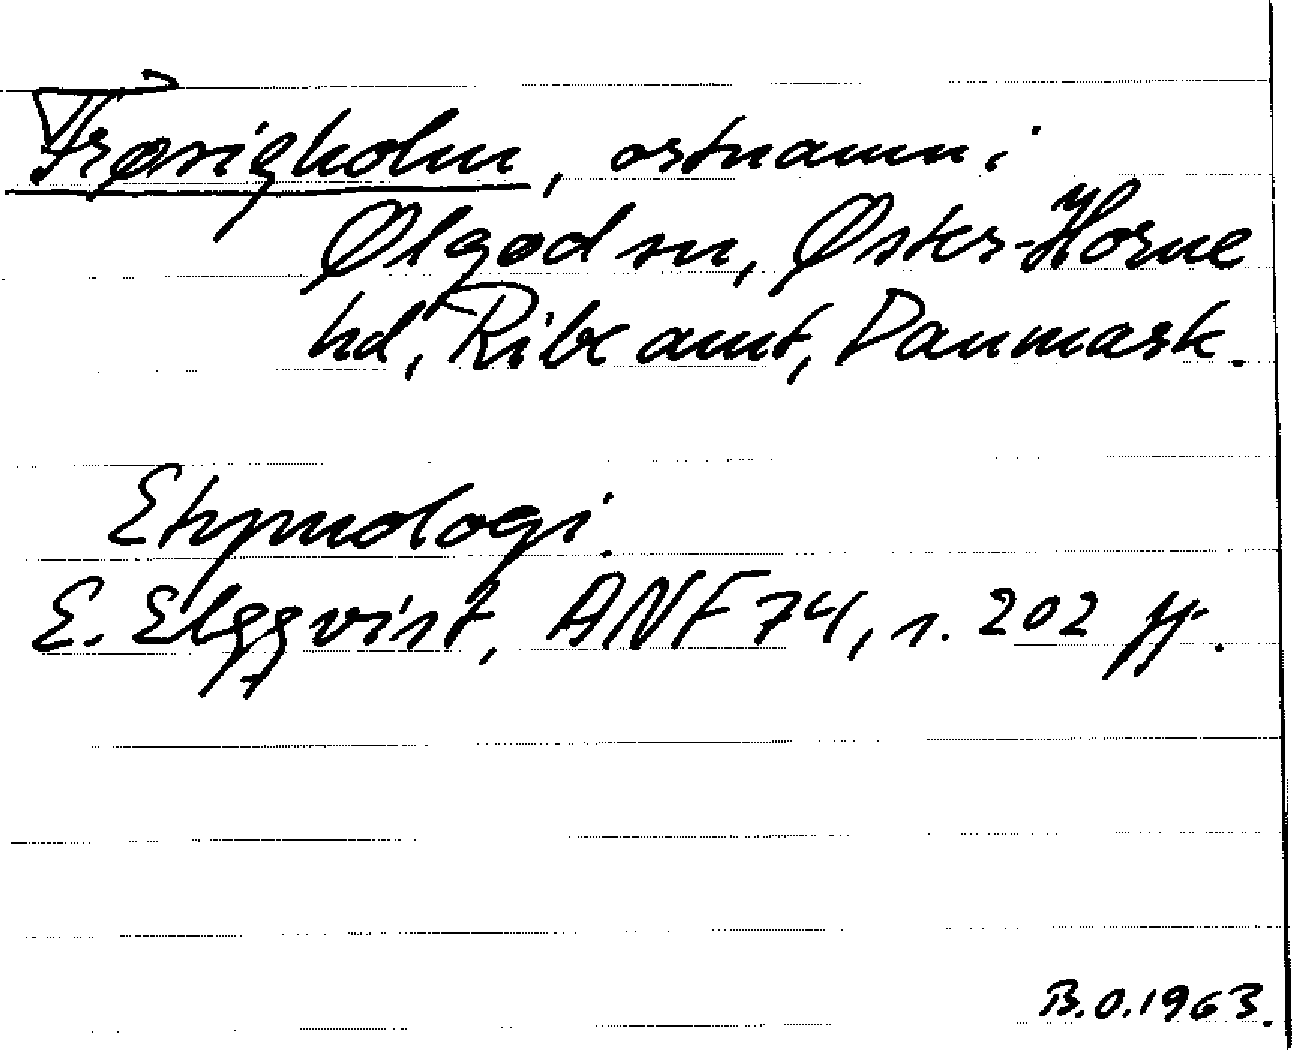 Frøsigholm, ortnamn i
Ølgod sn, Øster-Horne
hd, Ribe amt, Danmark.
Etymologi.
E. Elgqvist, ANF 74, s. 202 ff.
B.O. 1963.